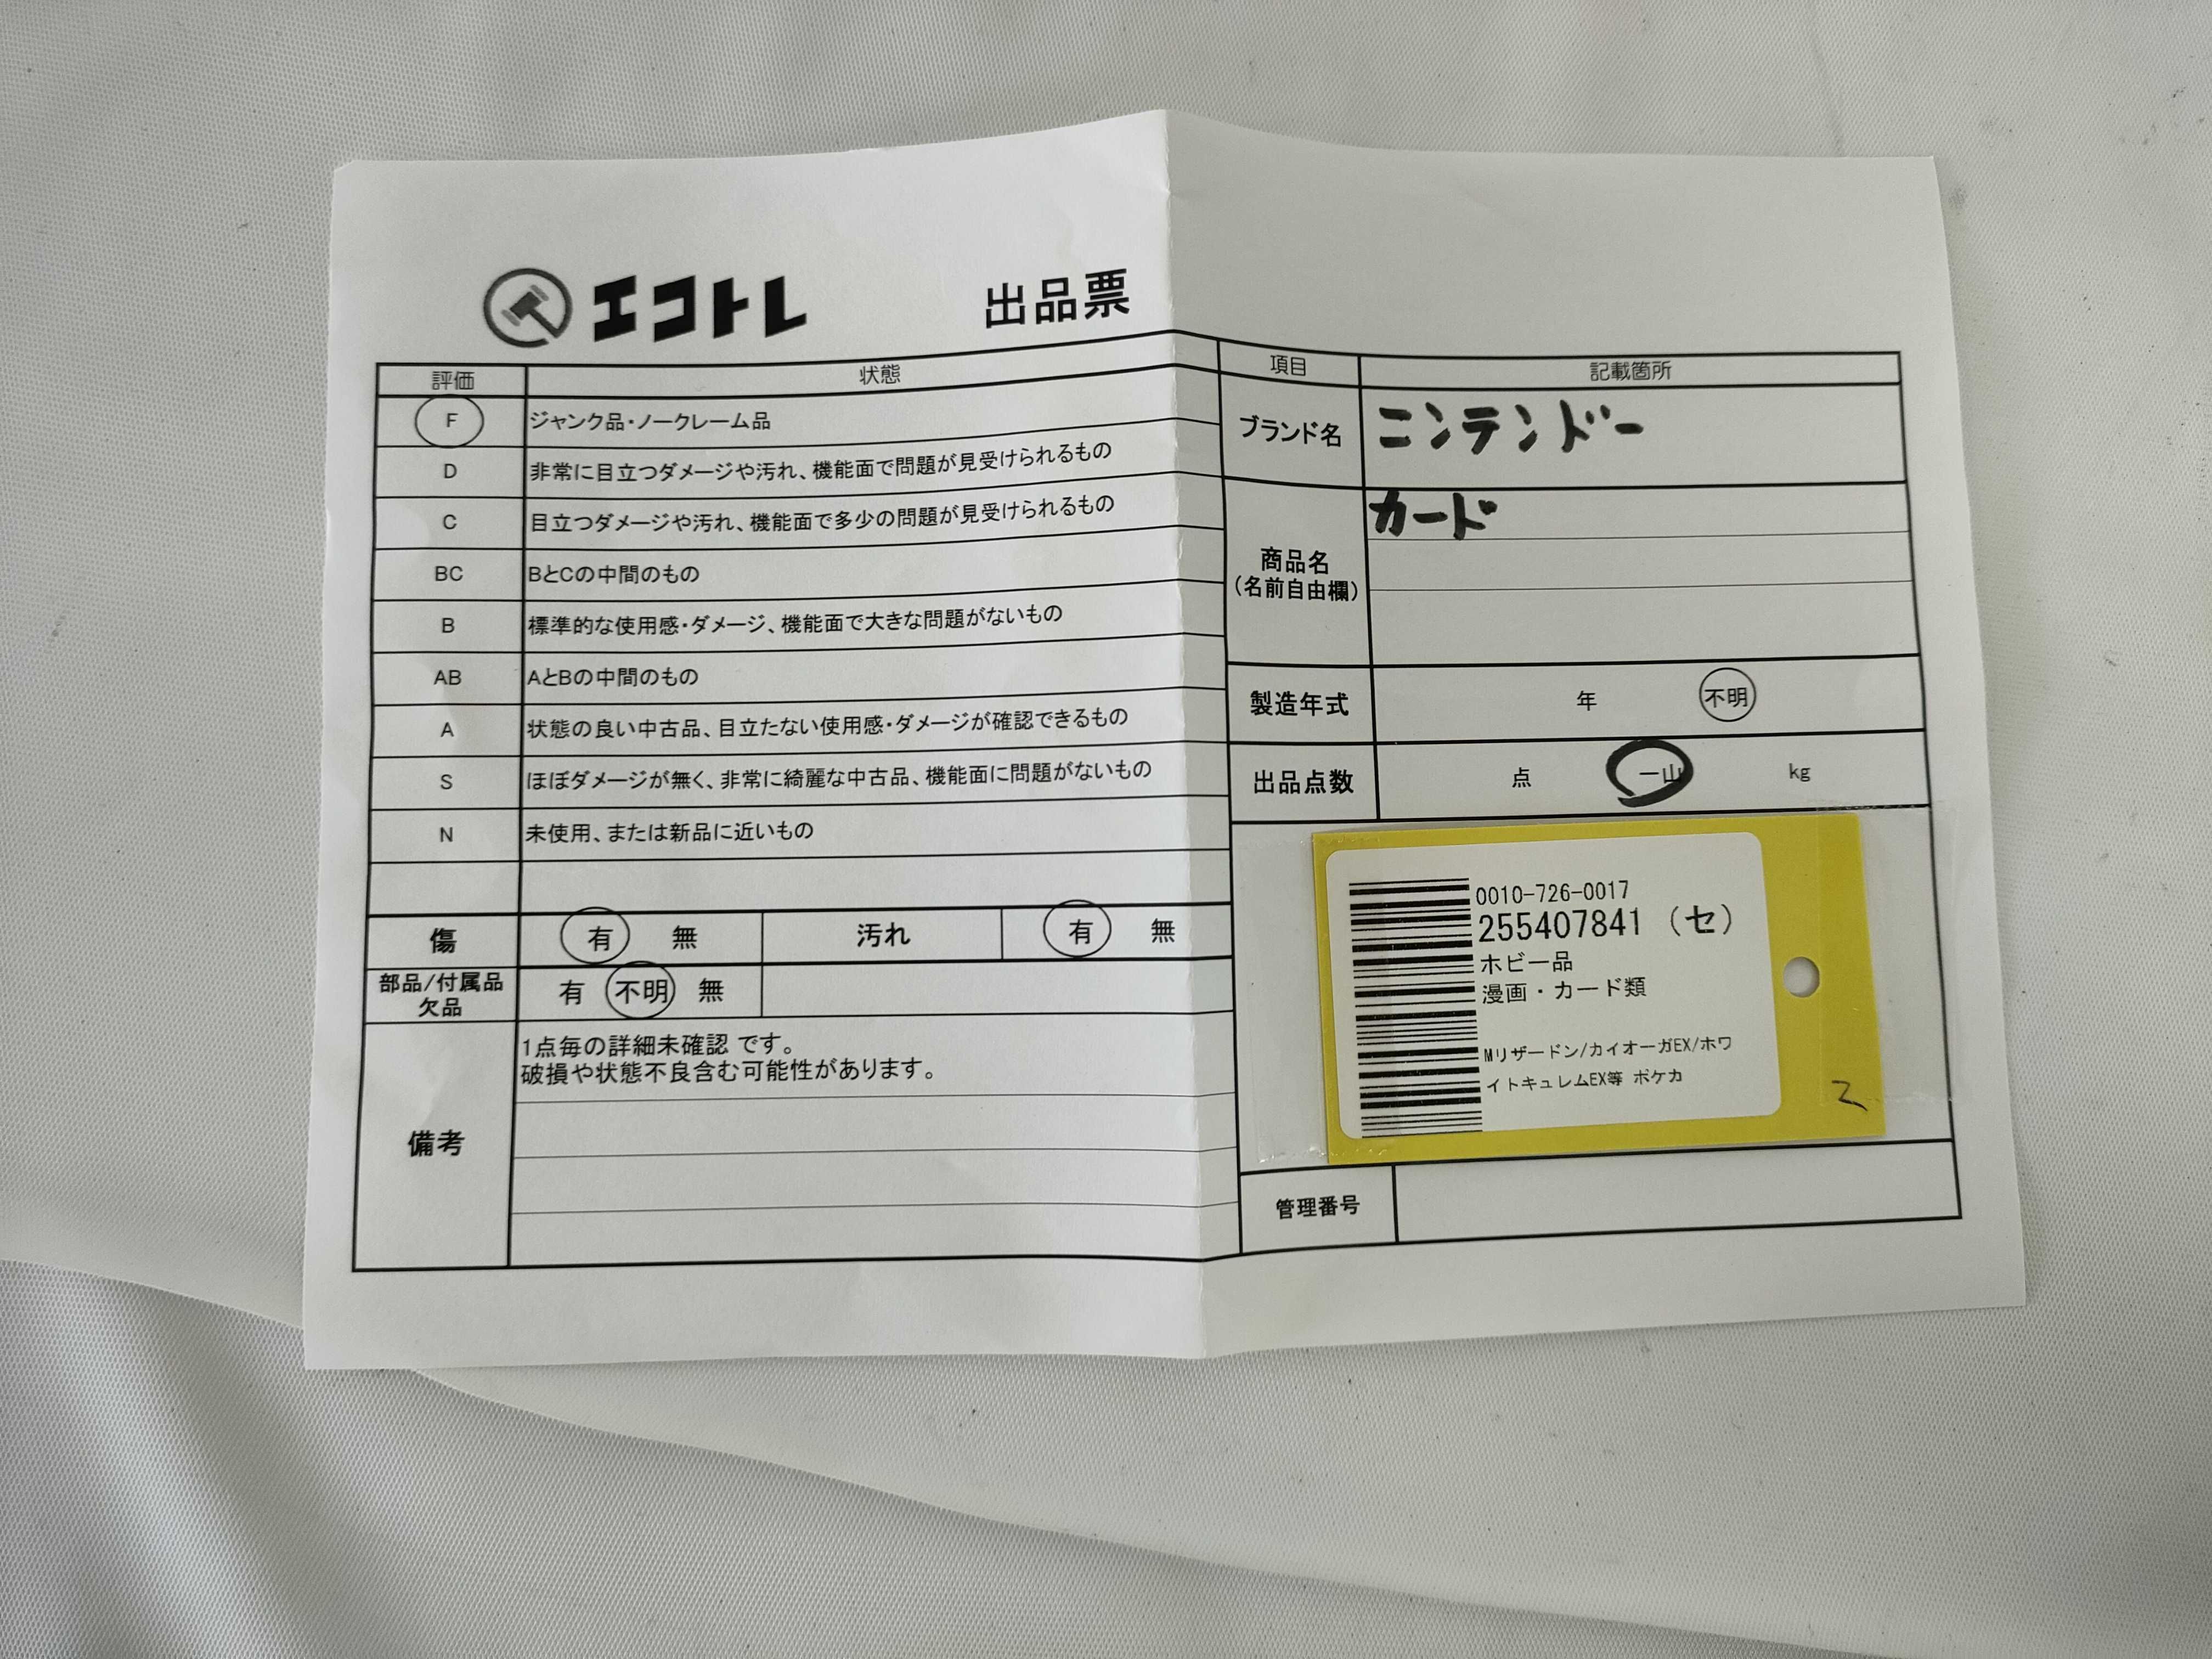 エコトレ 出品票
評価 状態
F ジャンク品・ノークレーム品
D 非常に目立つダメージや汚れ、機能面で問題が見受けられるもの
C 目立つダメージや汚れ、機能面で多少の問題が見受けられるもの
BC BとCの中間のもの
B 標準的な使用感・ダメージ、機能面で大きな問題がないもの
AB AとBの中間のもの
A 状態の良い中古品、目立たない使用感・ダメージが確認できるもの
S ほぼダメージが無く、非常に綺麗な中古品、機能面に問題がないもの
N 未使用、または新品に近いもの
傷 有 無 汚れ 有 無
部品/付属品
欠品 有 不明 無
備考
1点毎の詳細未確認 です。
破損や状態不良含む可能性があります。
項目 記載箇所
ブランド名 ニンテンドー
商品名
(名前自由欄) カード
製造年式 年 不明
出品点数 点 一山 kg
0010-726-0017
255407841 (セ)
ホビー品
漫画・カード類
Mリザードン/カイオーガEX/ホワ
イトキュレムEX等 ポケカ
管理番号